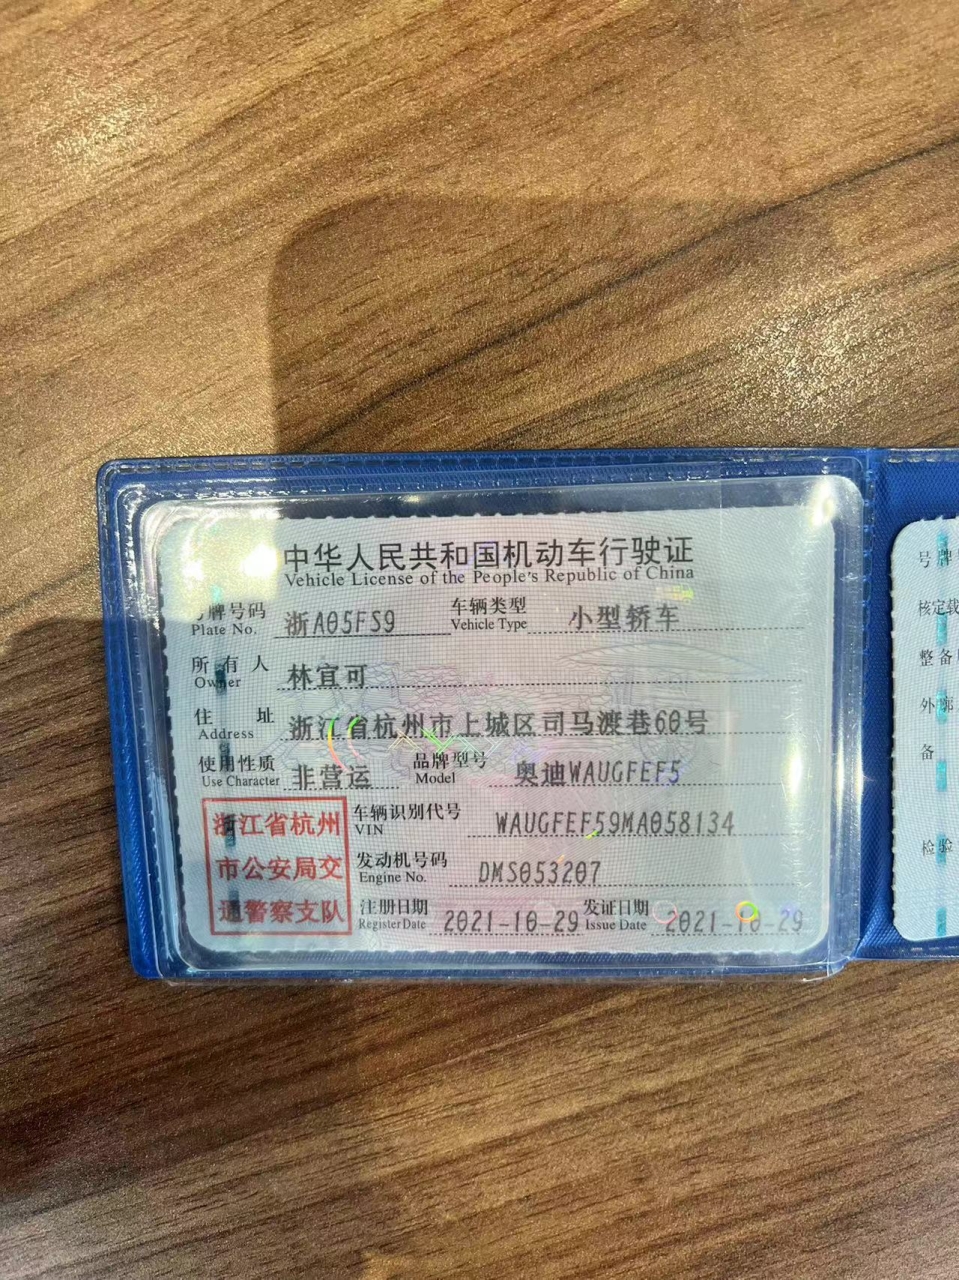 中华人民共和国机动车行驶证
Vehicle License of the People's Republic of China
号牌号码 浙A05FS9 车辆类型 小型轿车
Plate No. Vehicle Type
所有人 林宜可
Owner
住址 浙江省杭州市上城区司马渡巷60号
Address
使用性质 非营运 品牌型号 奥迪WAUGFEF5
Use Character Model
浙江省杭州
市公安局交
通警察支队
车辆识别代号 WAUGFEF59MA058134
VIN
发动机号码 DMS053207
Engine No.
注册日期 2021-10-29 发证日期 2021-10-29
Register Date Issue Date
号牌
核定载
整备
外廓
备
检验